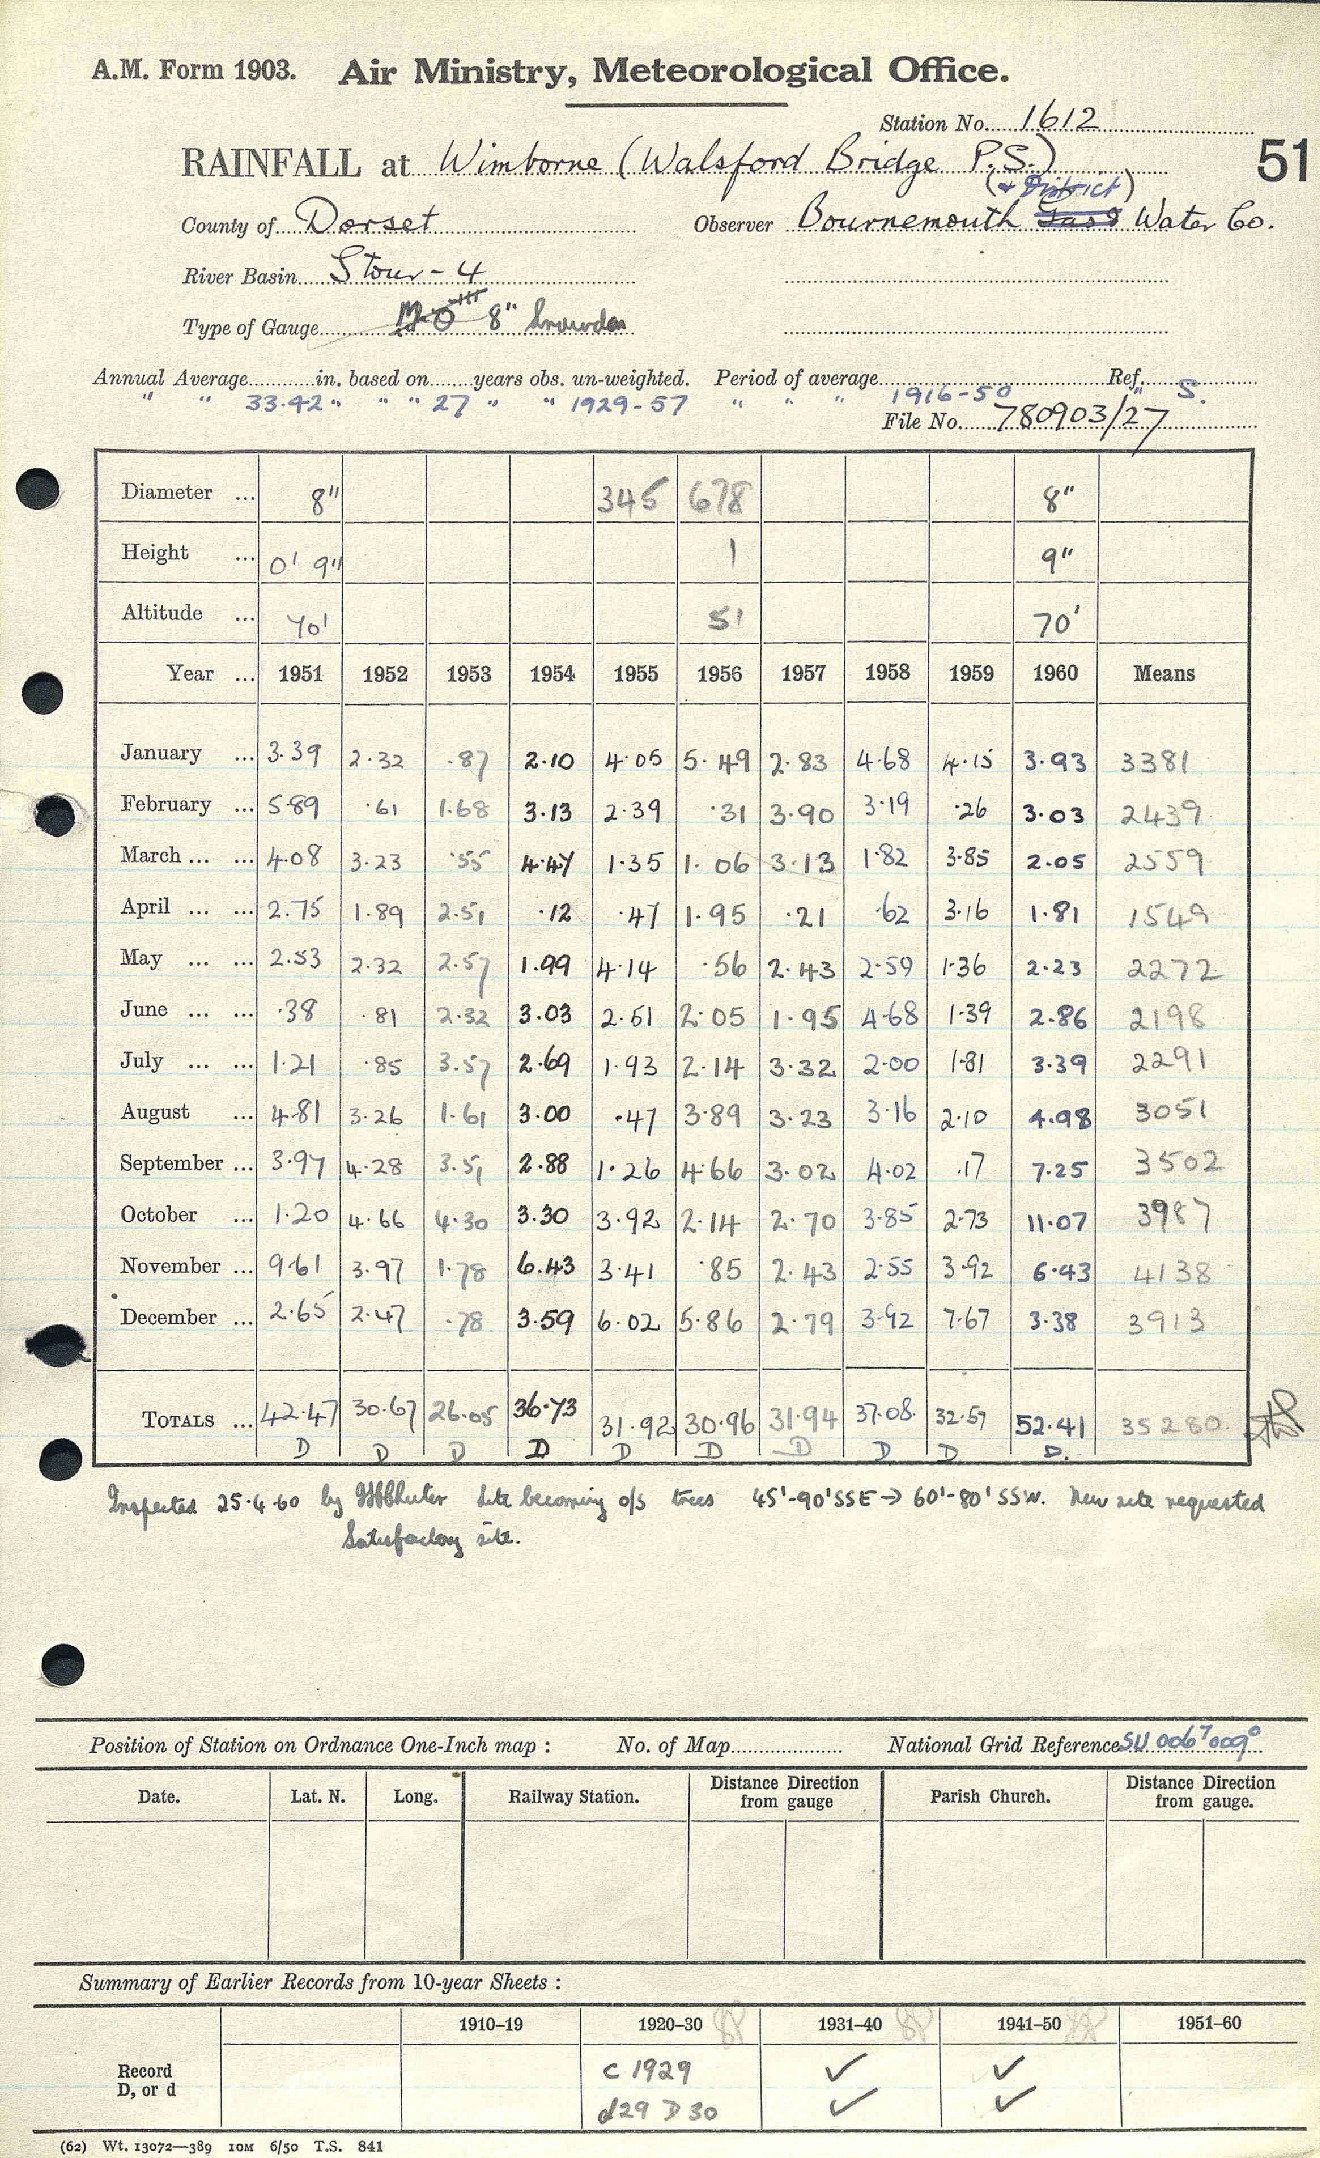 A.M. Form 1903. Air Ministry, Meteorological Office.
Station No. 1612
51
RAINFALL at Wimborne (Walsford Bridge P.S.)
(& District)
County of Dorset Observer Bournemouth Gas & Water Co.
River Basin Stour - 4
Type of Gauge M.O 8" Snowdon
Annual Average in. based on years obs. un-weighted. Period of average Ref.
" " 33.42 " " " 27 " " 1929-57 " " " 1916-50 " S.
File No. 780903/27
Diameter ... 8" 345 678 8"
Height ... 0' 9" 1 9"
Altitude ... 70' 51 70'
Year ... 1951 1952 1953 1954 1955 1956 1957 1958 1959 1960 Means
January ... 3.39 2.32 .87 2.10 4.05 5.49 2.83 4.68 4.15 3.93 3381
February ... 5.89 .61 1.68 3.13 2.39 .31 3.90 3.19 .26 3.03 2439
March ... ... 4.08 3.23 .55 4.47 1.35 1.06 3.13 1.82 3.85 2.05 2559
April ... ... 2.75 1.89 2.51 .12 .47 1.95 .21 .62 3.16 1.81 1549
May ... ... 2.53 2.32 2.57 1.99 4.14 .56 2.43 2.59 1.36 2.23 2272
June ... ... .38 .81 2.32 3.03 2.51 2.05 1.95 4.68 1.39 2.86 2198
July ... ... 1.21 .85 3.57 2.69 1.93 2.14 3.32 2.00 1.81 3.39 2291
August ... 4.81 3.26 1.61 3.00 .47 3.89 3.23 3.16 2.10 4.98 3051
September ... 3.97 4.28 3.51 2.88 1.26 4.66 3.02 4.02 .17 7.25 3502
October ... 1.20 4.66 4.30 3.30 3.92 2.14 2.70 3.85 2.73 11.07 3987
November ... 9.61 3.97 1.78 6.43 3.41 .85 2.43 2.55 3.92 6.43 4138
December ... 2.65 2.47 .78 3.59 6.02 5.86 2.79 3.92 7.67 3.38 3913
TOTALS ... 42.47 30.67 26.05 36.73 31.92 30.96 31.94 37.08 32.57 52.41 35280
D D D D D D D D D D.
Inspected 25.4.60 by Site becoming o/s trees 45'-90' SSE → 60'-80' SSW. New site requested
Satisfactory site.
Position of Station on Ordnance One-Inch map : No. of Map National Grid Reference SU 006⁷ 009⁰
Date. Lat. N. Long. Railway Station. Distance Direction from gauge Parish Church. Distance Direction from gauge.
Summary of Earlier Records from 10-year Sheets :
1910–19 1920–30 1931–40 1941–50 1951–60
Record c 1929 ✓ ✓
D, or d d29 D 30 ✓ ✓
(62) Wt. 13072—389 10M 6/50 T.S. 841